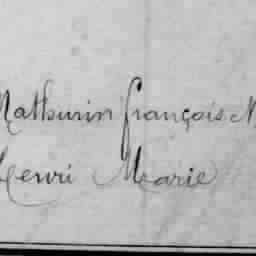 Mathurin françois
Henri Marie